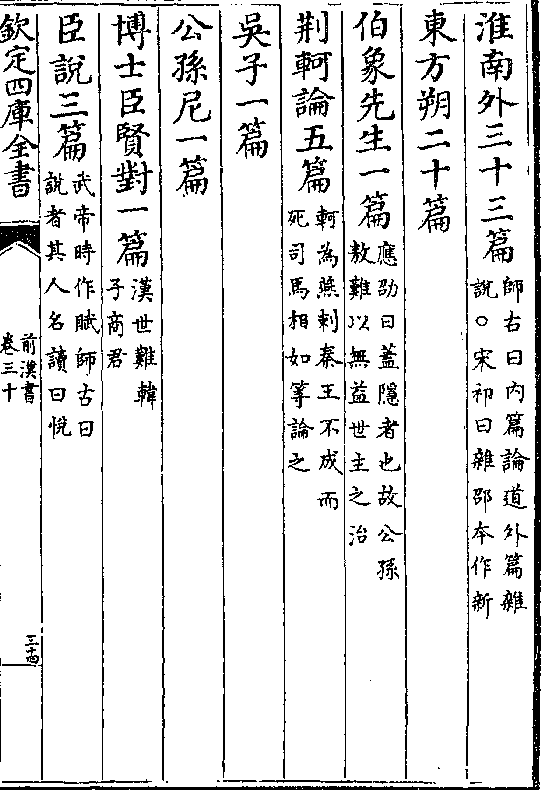 淮南外三十三篇師古曰內篇論道外篇雜說○宋祁曰雜邵本作新
東方朔二十篇
伯象先生一篇應劭曰蓋隱者也故公孫敖難以無益世主之治
荆軻論五篇軻為燕刺秦王不成而死司馬相如等論之
吳子一篇
公孫尼一篇
博士臣賢對一篇漢世難韓子商君
臣說三篇武帝時作賦師古曰說者其人名讀曰悅
欽定四庫全書
前漢書
卷三十
三十四